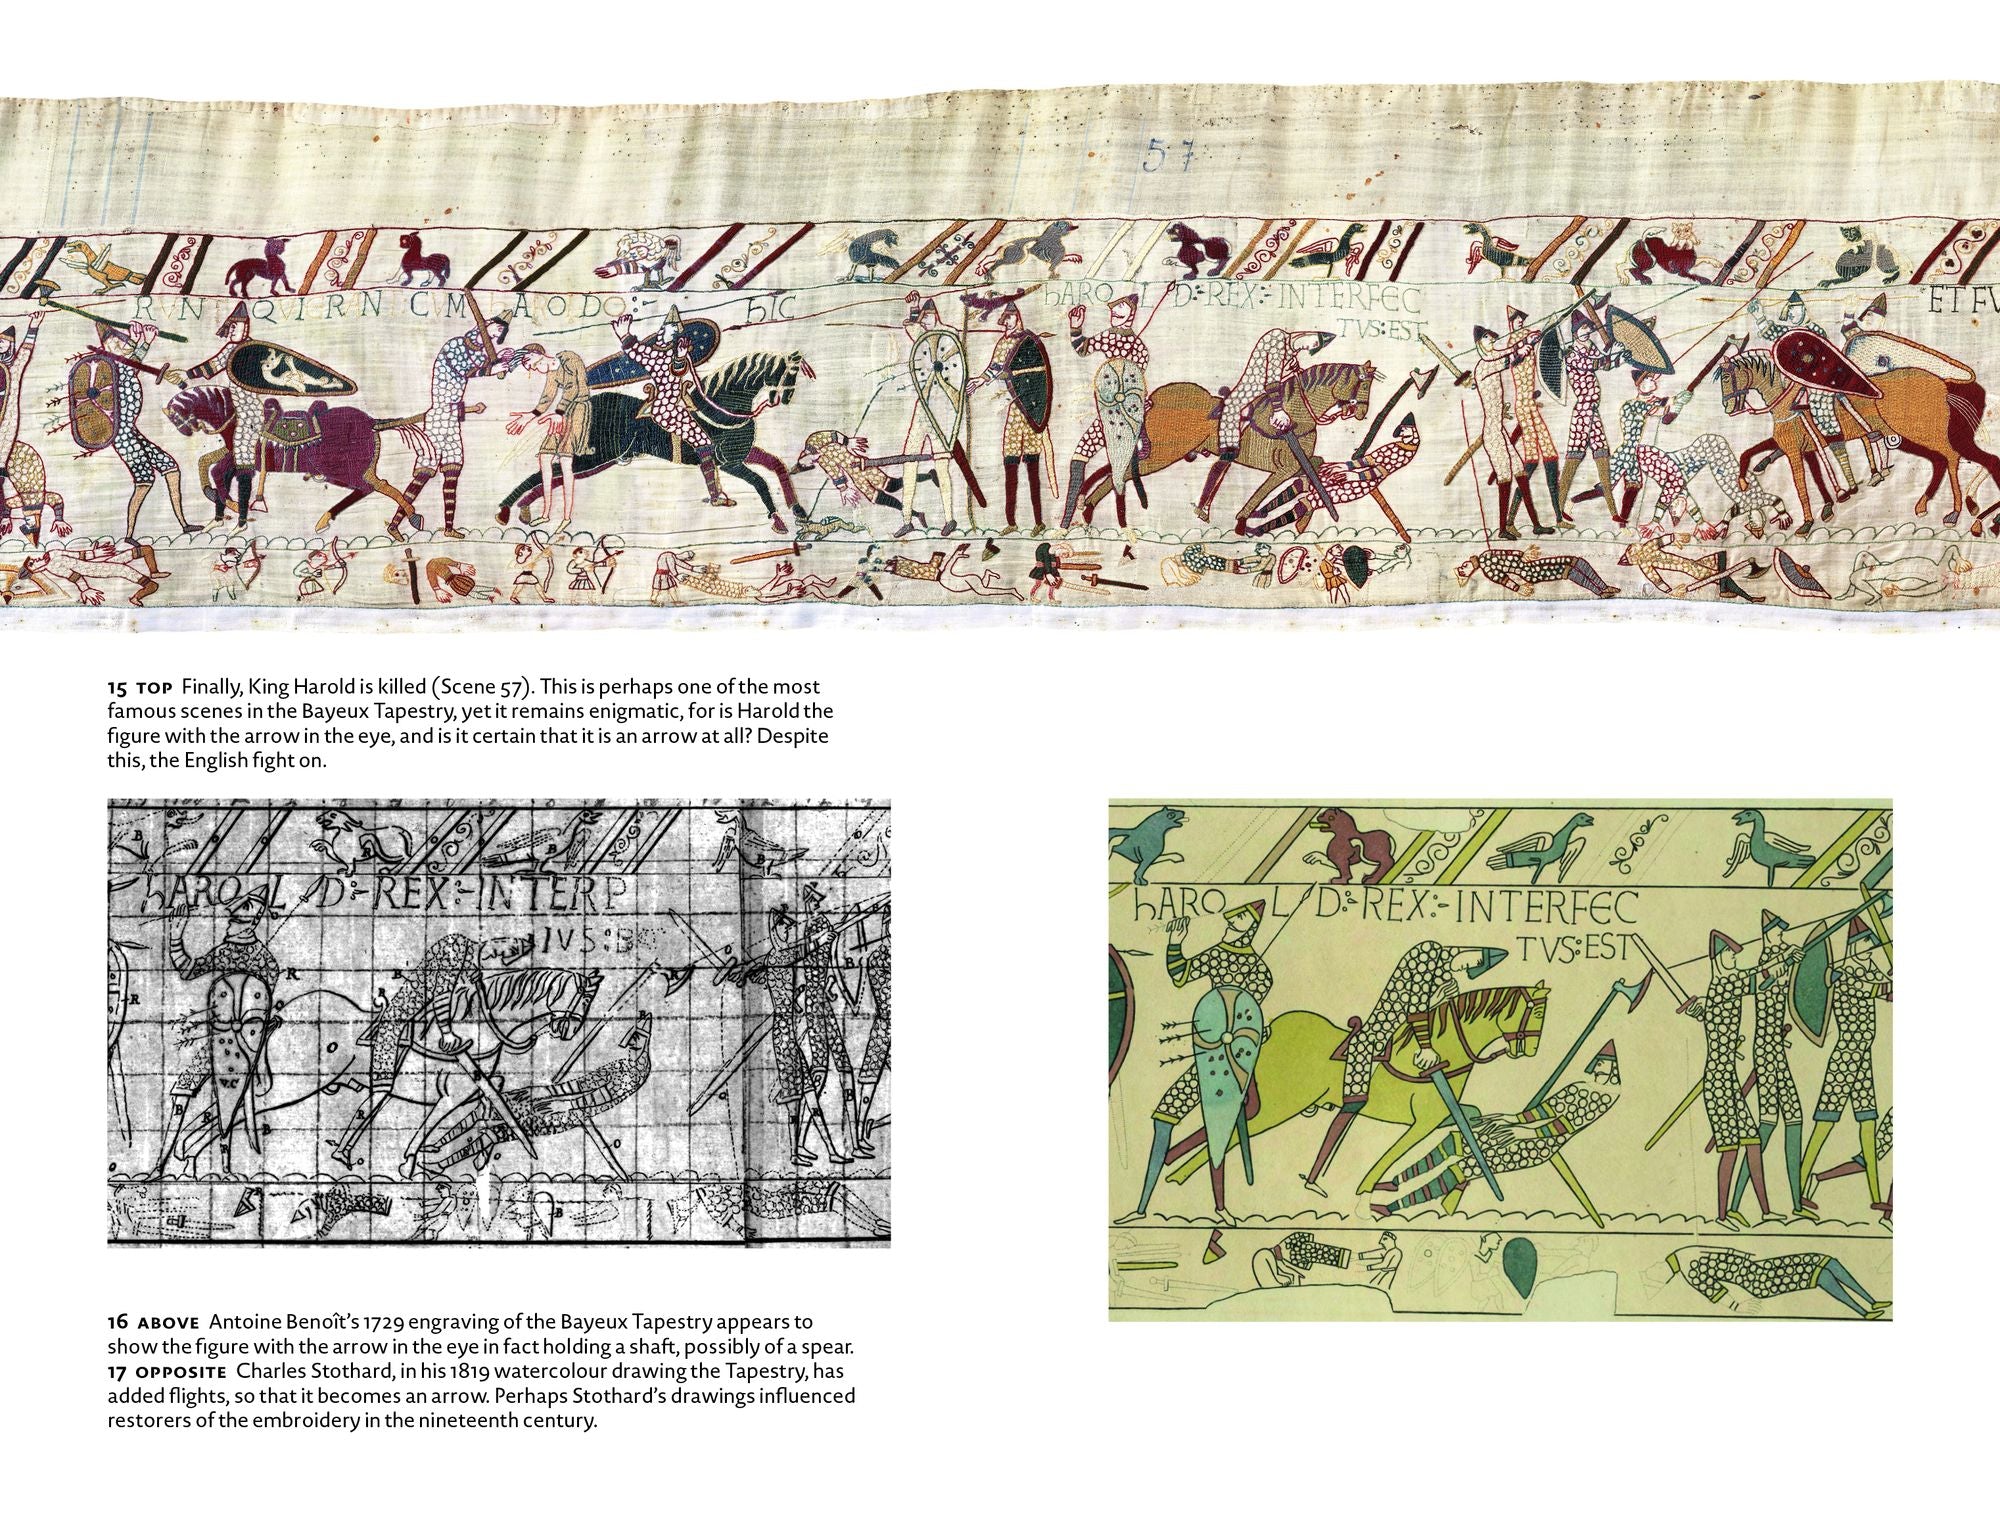 57
HIC
hARO L D:·REX:·INTERFEC
TVS:EST
ET FV
15 TOP Finally, King Harold is killed (Scene 57). This is perhaps one of the most
famous scenes in the Bayeux Tapestry, yet it remains enigmatic, for is Harold the
figure with the arrow in the eye, and is it certain that it is an arrow at all? Despite
this, the English fight on.
hARO L D:·REX:·INTERP
IVS:B
hARO L D:·REX:·INTERFEC
TVS:EST
16 ABOVE Antoine Benoît’s 1729 engraving of the Bayeux Tapestry appears to
show the figure with the arrow in the eye in fact holding a shaft, possibly of a spear.
17 OPPOSITE Charles Stothard, in his 1819 watercolour drawing the Tapestry, has
added flights, so that it becomes an arrow. Perhaps Stothard’s drawings influenced
restorers of the embroidery in the nineteenth century.